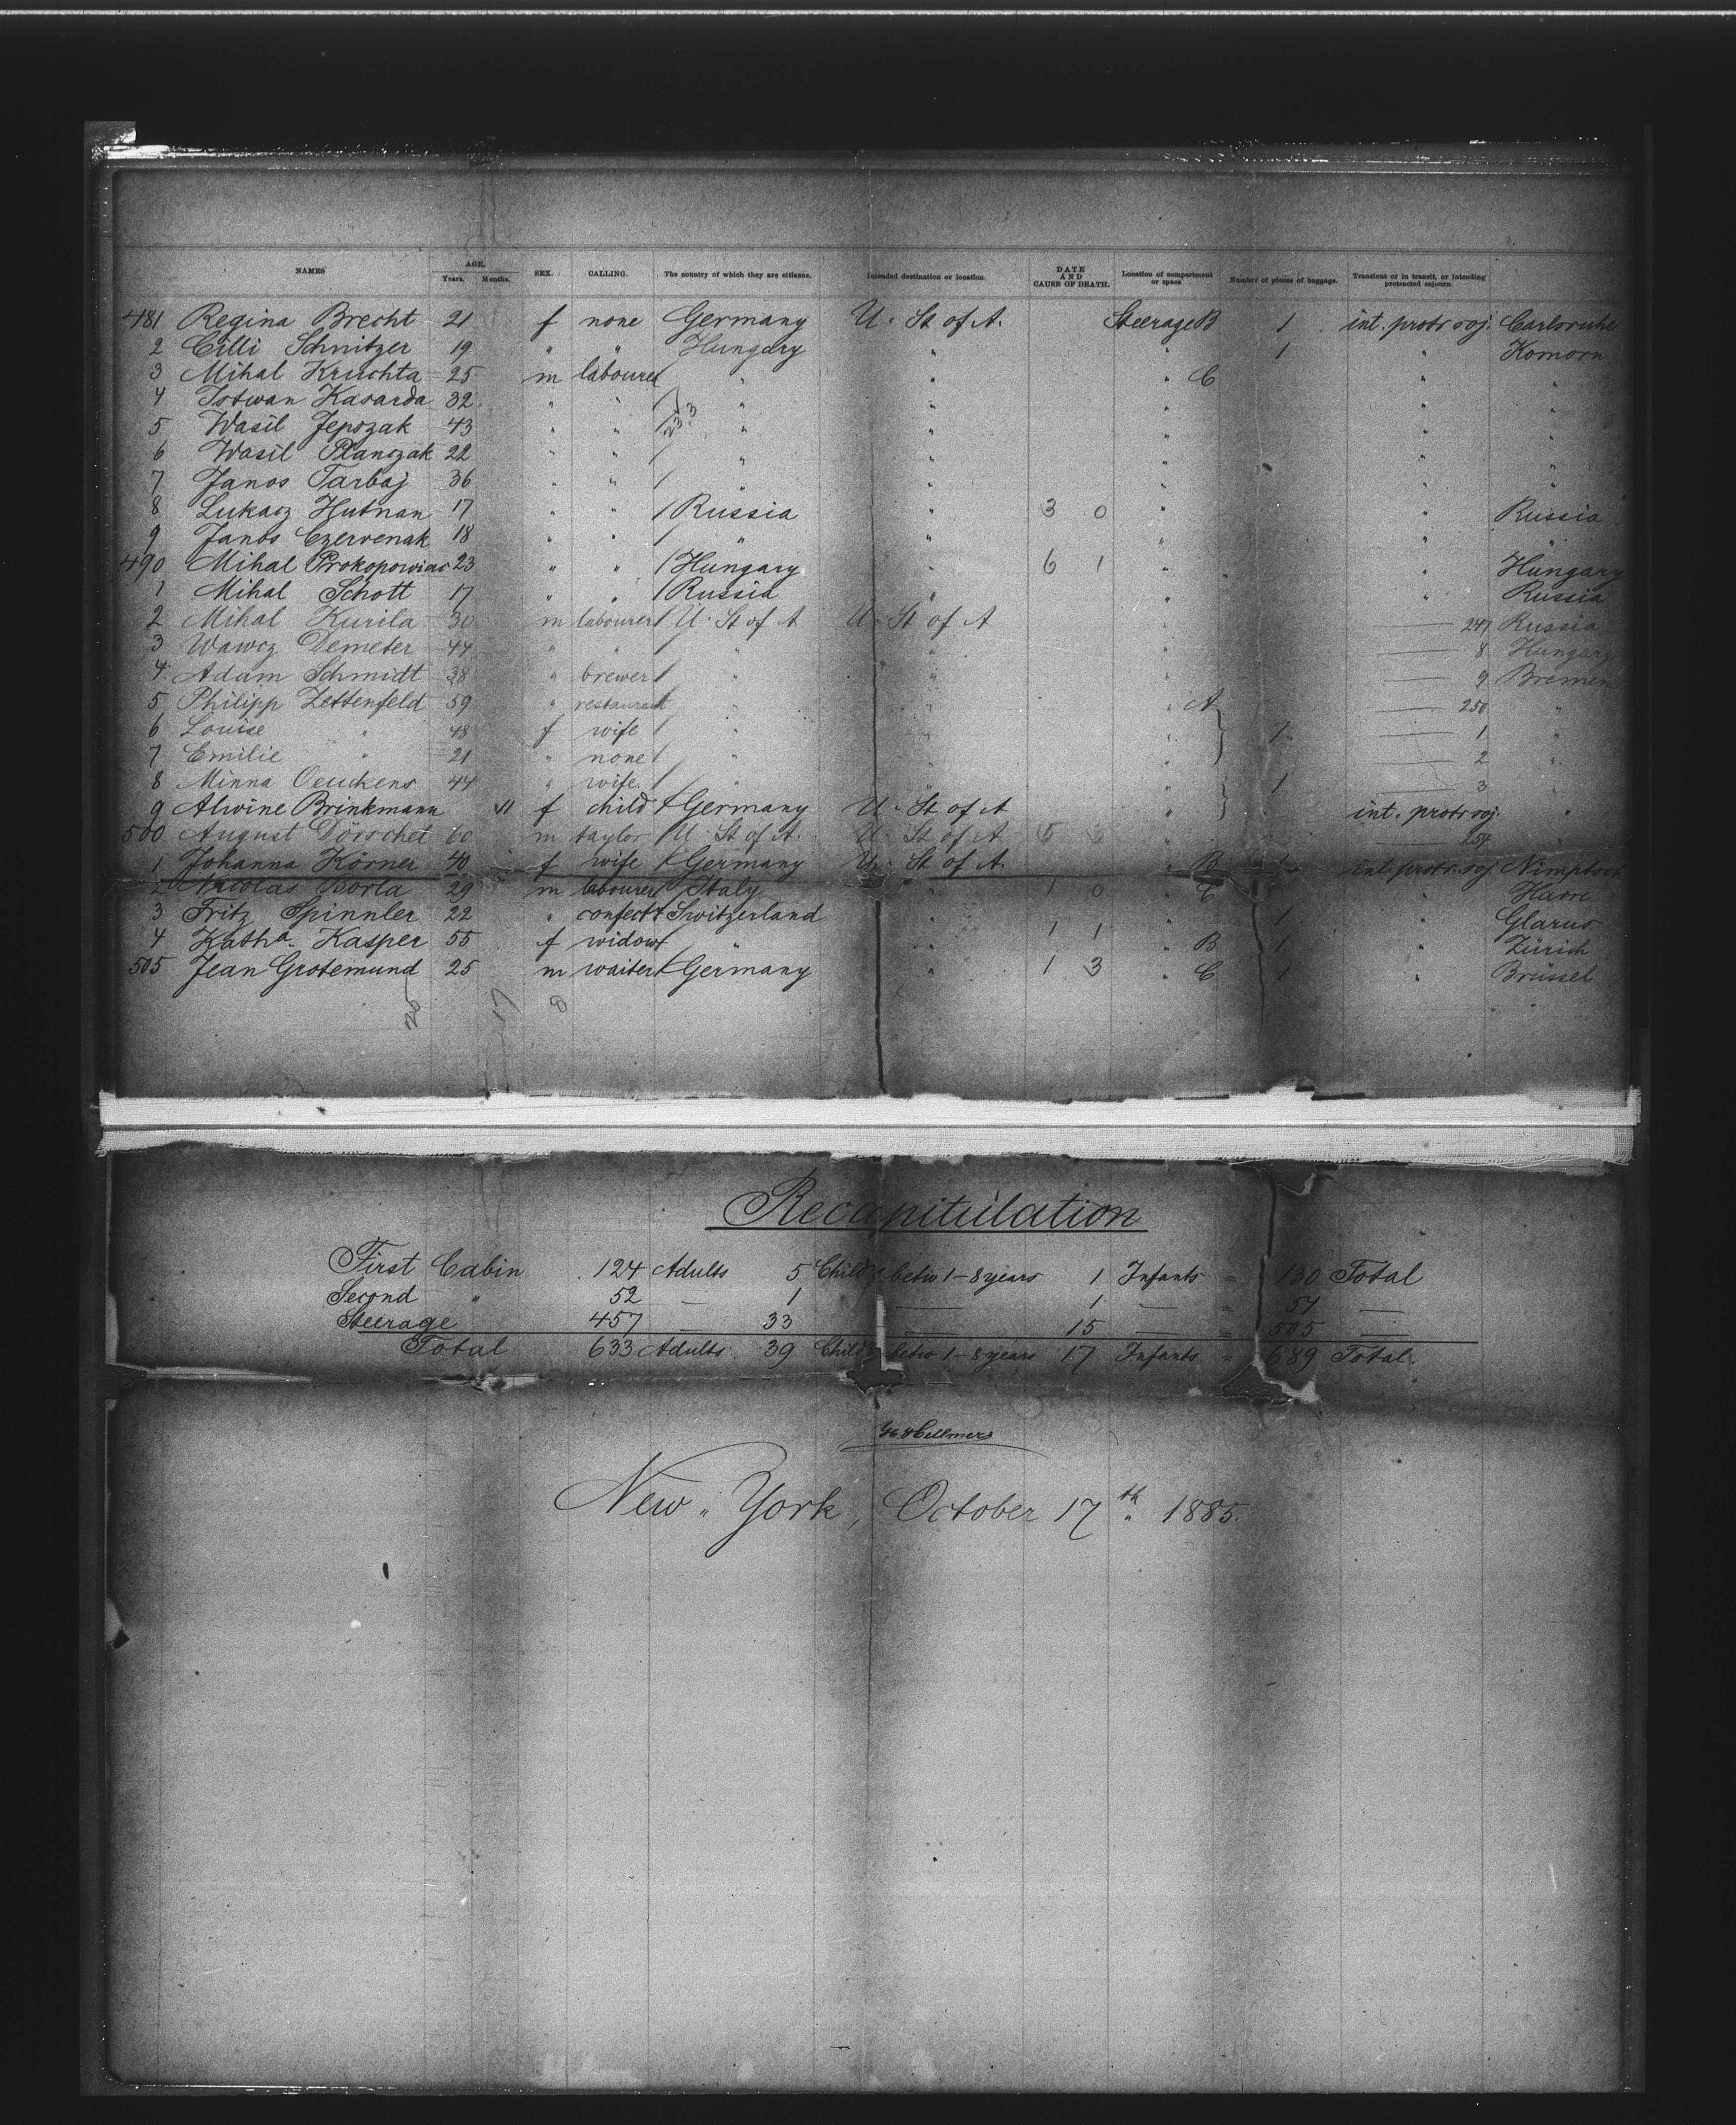 NAMES AGE. Years. Months. SEX. CALLING. The country of which they are citizens. Intended destination or location. DATE AND CAUSE OF DEATH. Location of compartment or space Number of pieces of baggage. Transient or in transit, or intending protracted sojourn.
481 Regina Brecht 21 f none Germany U. St of A. Steerage B 1 int. protr soj. Carlsruhe
2 Cilli Schnitzer 19 " " Hungary " " 1 " Komorn
3 Mihal Kruchta 25 m labourer " " " C " "
4 Istwan Kasarda 32 " " " " " " "
5 Wasil Jepszak 43 " " " " " " "
6 Wasil 22 " " " " " " "
7 Janos Tarbaj 36 " " " " " " "
8 Lukacz Hutnan 17 " " Russia " 3 0 " " Russia
9 Janos Czervenak 18 " " " " " " "
490 Mihal Prokopowias 23 " " Hungary " 6 1 " " Hungary
1 Mihal Schott 17 " " Russia " " " Russia
2 Mihal Kurila 30 m labourer U. St of A U. St of A " — 247 Russia
3 Wawcz Demeter 44 " " " " " — 8 Hungary
4 Adam Schmidt 38 " brewer " " " — 9 Bremen
5 Philipp Zettenfeld 59 " restaurant " " " A — 250 "
6 Louise " 48 f wife " " " 1 — 1 "
7 Emilie " 21 " none " " " — 2 "
8 Minna Oeuckens 44 " wife " " " 1 — 3 "
9 Alwine Brinkmann 11 f child Germany U. St of A " int. protr soj. "
500 August Dörschel 60 m taylor U. St of A. U. St of A 5 3 " — 254 "
1 Johanna Körner 40 f wife Germany U. St of A " B 1 int. protr. soj. Nimptsch
2 Nicolas Borla 29 m labourer Italy " 1 0 " C " Havre
3 Fritz Spinnler 22 " confect Switzerland " 1 1 " 1 " Glarus
4 Katha. Kasper 55 f widow " " " B 1 " Zürich
505 Jean Grotemund 25 m waiter Germany " 1 3 " C 1 " Brüssel
17 8
Recapitulation
First Cabin 124 Adults 5 Childr betw 1-8 years 1 Infants = 130 Total
Second " 52 — 1 — 1 — = 54 —
Steerage 457 — 33 — 15 — = 505 —
Total 633 Adults 39 Childr betw 1-8 years 17 Infants = 689 Total.
New-York, October 17th 1885.